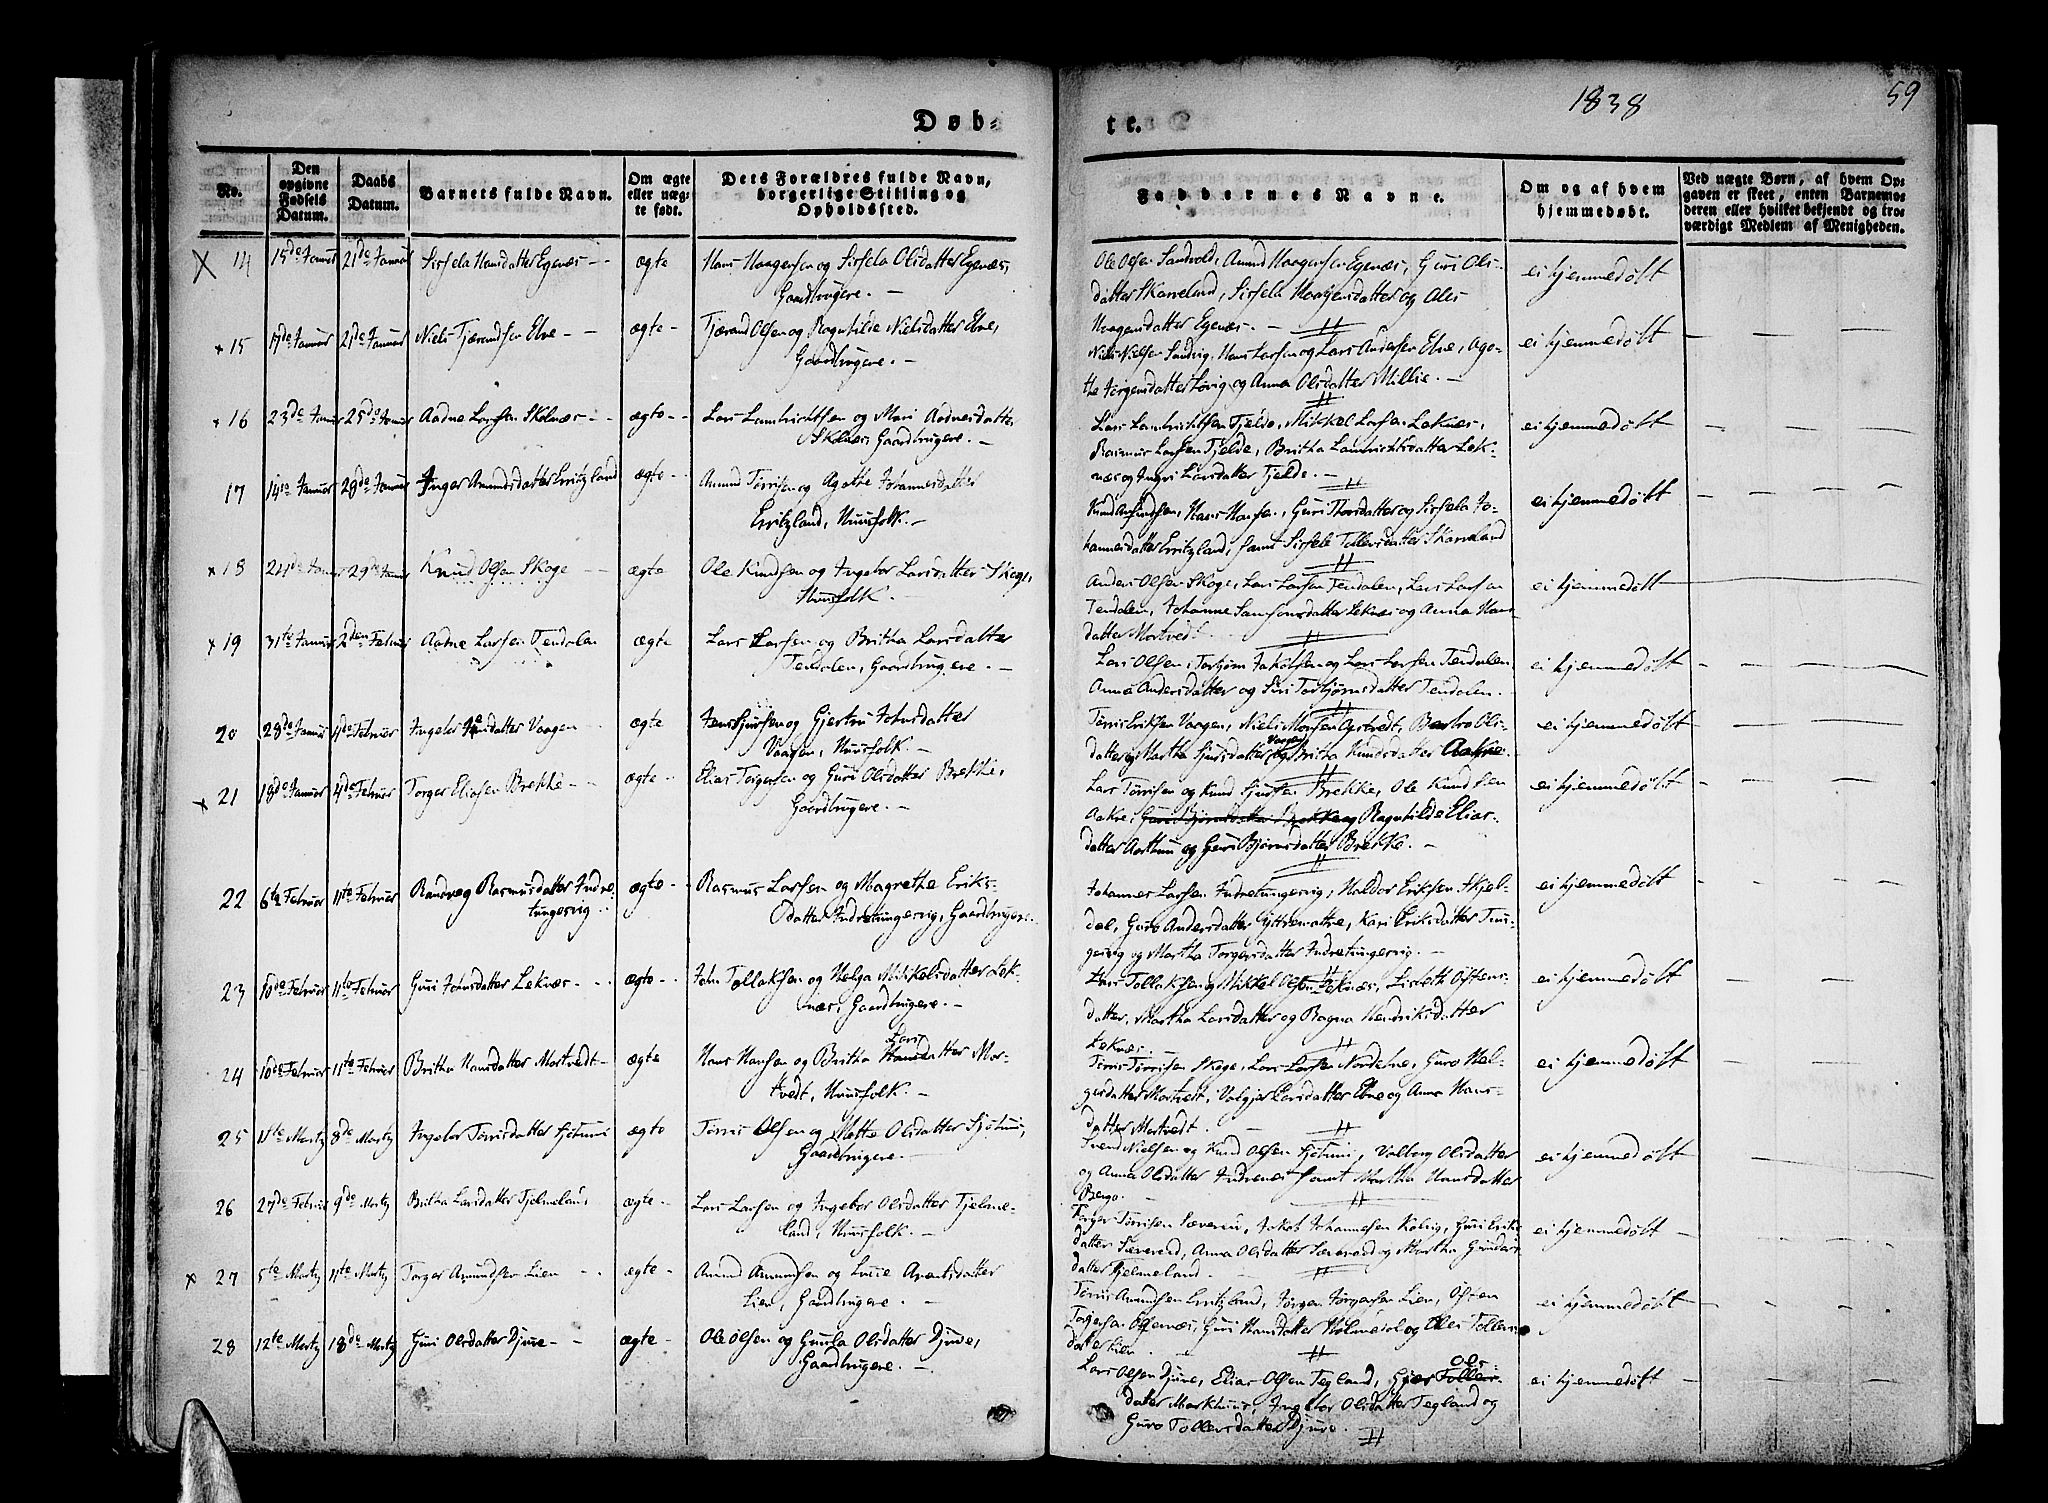 1838
59
Døb-
te.
No.
Den opgivne Fødsels Datum.
Daabs Datum.
Barnets fulde Navn.
Om ægte eller uægte født.
Dets Forældres fulde Navn, borgerlige Stilling og Opholdssted.
Faddernes Navne.
Om og af hvem hjemmedøbt.
Ved uægte Børn, af hvem Opgaven er skeet, enten Barnemoderen eller hvilket bekjendt og troværdigt Medlem af Menigheden.
14 15de Januar 21de Januar Sirsela Hansdatter Egenæs ægte Hans Haagensen og Sirsela Olsdatter Egenæs,
Gaardbrugere.
Ole Olsen Sandvold, Amund Haagensen Egenæs, Guri Ols-
datter Skaneland, Sirsela Haagensdatter og
Haagensdatter Egenæs.
ei hjemmedøbt
15 17de Januar 21de Januar Niels Tjærandsen Elve ægte Tjærand Olsen og Ragnhilde Nielsdatter Elve,
Gaardbrugere.
Niels Nielsen Sandvig, Hans Larsen og Lars Andersen Elve, Aga-
the Jørgensdatter Løvig og Anna Olsdatter Millie.
ei hjemmedøbt
16 23de Januar 25de Januar Aadne Larsen Skelnæs ægte Lars Lambrichtsen og Mari Aadnesdatter
Skelnæs, Gaardbrugere.
Lars Lambrichtsen Tjelde, Mikkel Larsen Leknæs,
Rasmus Larsen Tjelde, Britha Lambrichtsdatter Lek-
næs og Ingri Larsdatter Tjelde.
ei hjemmedøbt
17 14de Januar 28de Januar Inger Amundsdatter Erritzland ægte Amund Tørrisen og Agathe Johannesdatter
Erritzland, Huusfolk.
Knud Hans Hansen, Guri Thorsdatter og Sirsela Jo-
hannesdatter Erritzland, samt Sirsele Tollevsdatter Skaneland
ei hjemmedøbt
18 Januar 29de Januar Knud Olsen Skoge ægte Ole Knudsen og Ingebor Larsdatter Skoge,
Huusfolk.
Anders Olsen Skoge, Lars Larsen Tendalen, Lars Larsen
Tendalen, Johanne Samsonsdatter Leknæs og Anna Hans-
datter Mortvedt
ei hjemmedøbt
19 31te Januar 2den Februar Aadne Larsen Tendalen ægte Lars Larsen og Britha Larsdatter
Tendalen, Gaardbrugere.
Lars Olsen, Torbjørn Jakobsen og Lars Larsen Tendalen,
Anna Andersdatter og Siri Torbjørnsdatter Tendalen.
ei hjemmedøbt
20 28de Januar 4de Februar Ingebor Jensdatter Vaagen ægte Jens Sjursen og Gjertru Johnsdatter
Vaagen, Huusfolk.
Tørris Eriksen Vaagen, Niels Monsen Ols-
datter og Martha Sjursdatter Vaagen og Britha Knudsdatter Aakre.
ei hjemmedøbt
21 18de Januar 4de Februar Torger Eliasen Brekke ægte Elias Torgersen og Guri Olsdatter Brekke,
Gaardbrugere.
Lars Tørrisen og Knud Sjursen Brekke, Ole Knudsen
Aakre, Guri Bjørnsdatter Brekke og Ragnhilde Elias-
datter og Guri Bjørnsdatter Brekke.
ei hjemmedøbt
22 6te Februar 11te Februar Randveg Rasmusdatter Indre-
tungesvig ægte Rasmus Larsen og Magrethe Eriks-
datter Indretungesvig, Gaardbrugere.
Johannes Larsen Indretungesvig, Haldor Eriksen Skjel-
dal, Guro Andersdatter Yttremattre, Kari Eriksdatter Tun-
gesvig og Martha Torgersdatter Indretungesvig.
ei hjemmedøbt
23 10de Februar 11te Februar Guri Johnsdatter Leknæs ægte John Tollaksen og Helga Mikkelsdatter Lek-
næs, Gaardbrugere.
Lars Tollaksen og Mikkel Olsen Leknæs, Lisbeth Østens-
datter, Martha Larsdatter og Ragna Hendriksdatter
Leknæs.
ei hjemmedøbt
24 10de Februar 11te Februar Britha Hansdatter Mortvedt ægte Hans Hansen og Britha Hansdatter Lars Mor-
tvedt, Huusfolk.
Tørris Tørrisen Skoge, Lars Larsen Norderne, Guro Hel-
gesdatter Mortvedt, Valgjer Larsdatter Elve og Anna Hans-
datter Mortvedt.
ei hjemmedøbt
25 Martz 8de Martz Ingebor Tørrisdatter Sjøtuni ægte Tørris Olsen og Mette Olsdatter Sjøtuni,
Gaardbrugere.
Svend Nielsen og Knud Olsen Sjøtuni, Valborg Olsdatter
og Anna Olsdatter Indrenæs samt Martha Hansdatter
Berge.
ei hjemmedøbt
26 27de Februar 9de Martz Britha Larsdatter Tjelmeland, ægte Lars Larsen og Ingebor Olsdatter Tjelme-
land, Huusfolk.
Torger Tørrisen Jakob Johannesen Guri Eriks-
datter Sævereid, Anna Olsdatter Sævereid og Martha
datter Tjelmeland.
ei hjemmedøbt
27 5te Martz 11te Martz Torger Amundsen Lien ægte Amund Amundsen og Lucie
Lien, Gaardbrugere.
Tørris Amundsen Erritzland, Jørgen Jørgensen Lien, Østen
Torgersen Guri Hansdatter og Tollevs-
datter Lien.
ei hjemmedøbt
28 12te Martz 18de Martz Guri Olsdatter Djuve ægte Ole Olsen og Gunla Olsdatter Djuve,
Gaardbrugere.
Lars Olsen Djuve, Elias Olsen Tegland, Tollevs- Ols-
datter Markhuus, Ingebor Olsdatter Tegland og
Guro Tollevsdatter Djuve.
ei hjemmedøbt